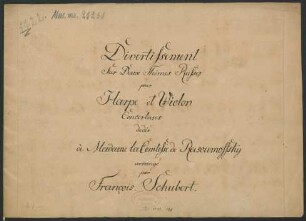 Divertissement
Sur Deux Thêmes Russes
pour
Harpe et Violon
Concertant
dediés
à Madame la Comtesse de Rasoumoffsky
par
François Schubert.